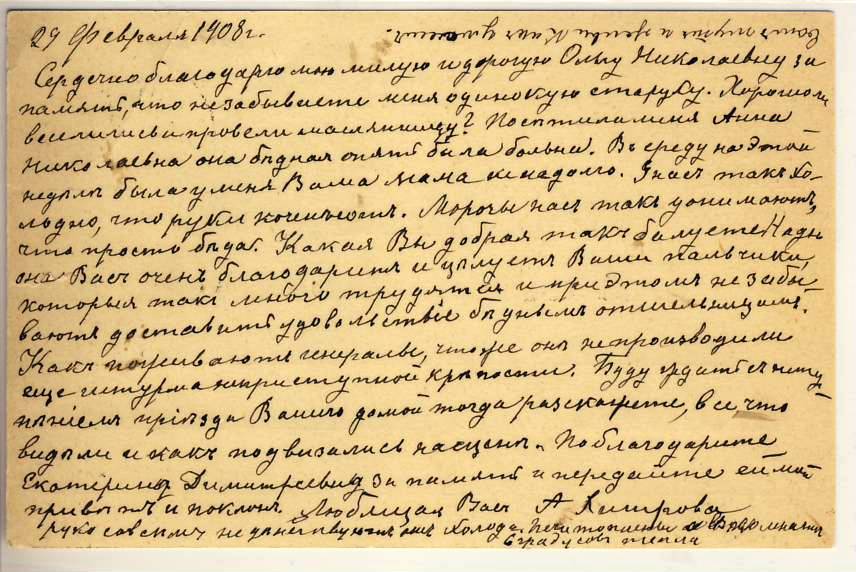 29 Февраля 1908 г.
Сердечно благодарю мою милую и дорогую Ольгу Николаевну за
память, что не забываете меня одинокую старуху. Хорошо ли
веселились и провели масляницу? Посѣтила меня Анна
Николаевна она бѣдная опять была больна. Въ среду на этой
недѣлѣ была у меня Ваша мама не надолго. У насъ такъ хо-
лодно, что руки коченѣютъ. Морозы насъ такъ донимаютъ,
что просто бѣда. Какая Вы добрая такъ балуете Надю
она Васъ очень благодаритъ и цѣлуетъ Ваши пальчики,
которыя такъ много трудятся и при этомъ не забы
ваютъ доставить удовольствіе бѣднымъ отшельницамъ.
Какъ поживаютъ генералы, что же онѣ не производили
еще штурма неприступной крѣпости. Буду ждать съ нетер
пѣніемъ пріѣзда Вашего домой тогда разскажете, все, что
видѣли и какъ подвизались на сценѣ. Поблагодарите
Екатерину Димитревну за память и передайте ей мой
привѣтъ и поклонъ. Любящая Васъ А Хитрова
холода
6 градусовъ тепла